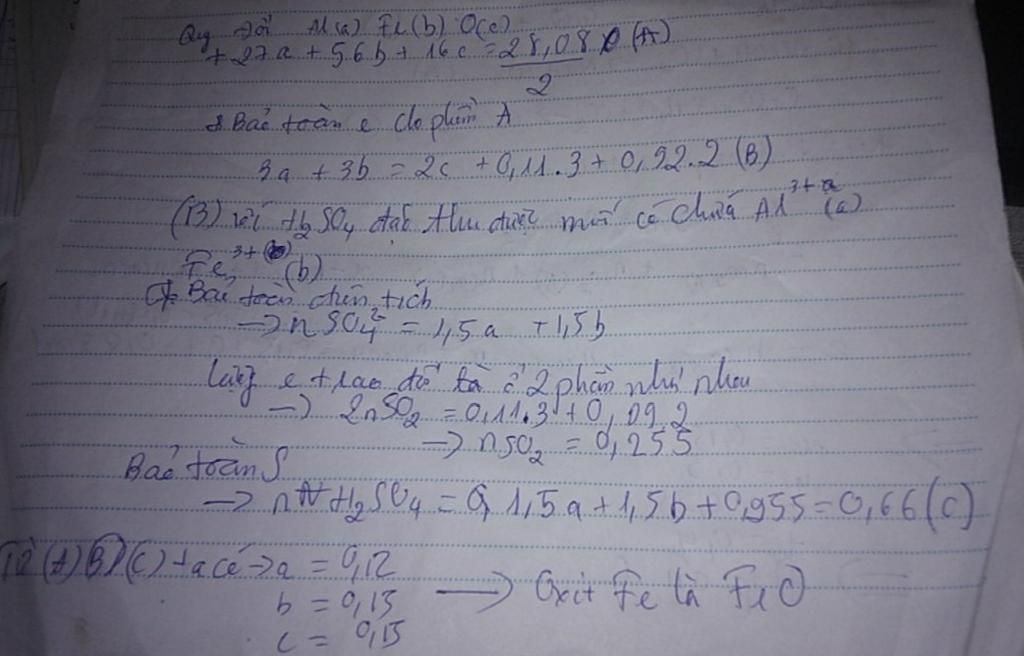 Quy đổi Al(a) Fe(b) O(c)
+ 27a + 56b + 16c = 28,08 / 2 (A)
Bảo toàn e cho phần A
3a + 3b = 2c + 0,11.3 + 0,92.2 (B)
(B) với H2SO4 đặc thu được muối có chứa Al3+ (a)
Fe3+ (b)
Bảo toàn điện tích
→ nSO4 2- = 1,5a + 1,5b
Lượng e trao đổi là ở 2 phần như nhau
→ 2nSO2 = 0,11.3 + 0,09.2
→ nSO2 = 0,255
Bảo toàn S
→ nH2SO4 = 1,5a + 1,5b + 0,955 = 0,66 (C)
Từ (A)(B)(C) ta có → a = 0,12
b = 0,15 → Oxit Fe là FeO
c = 0,15